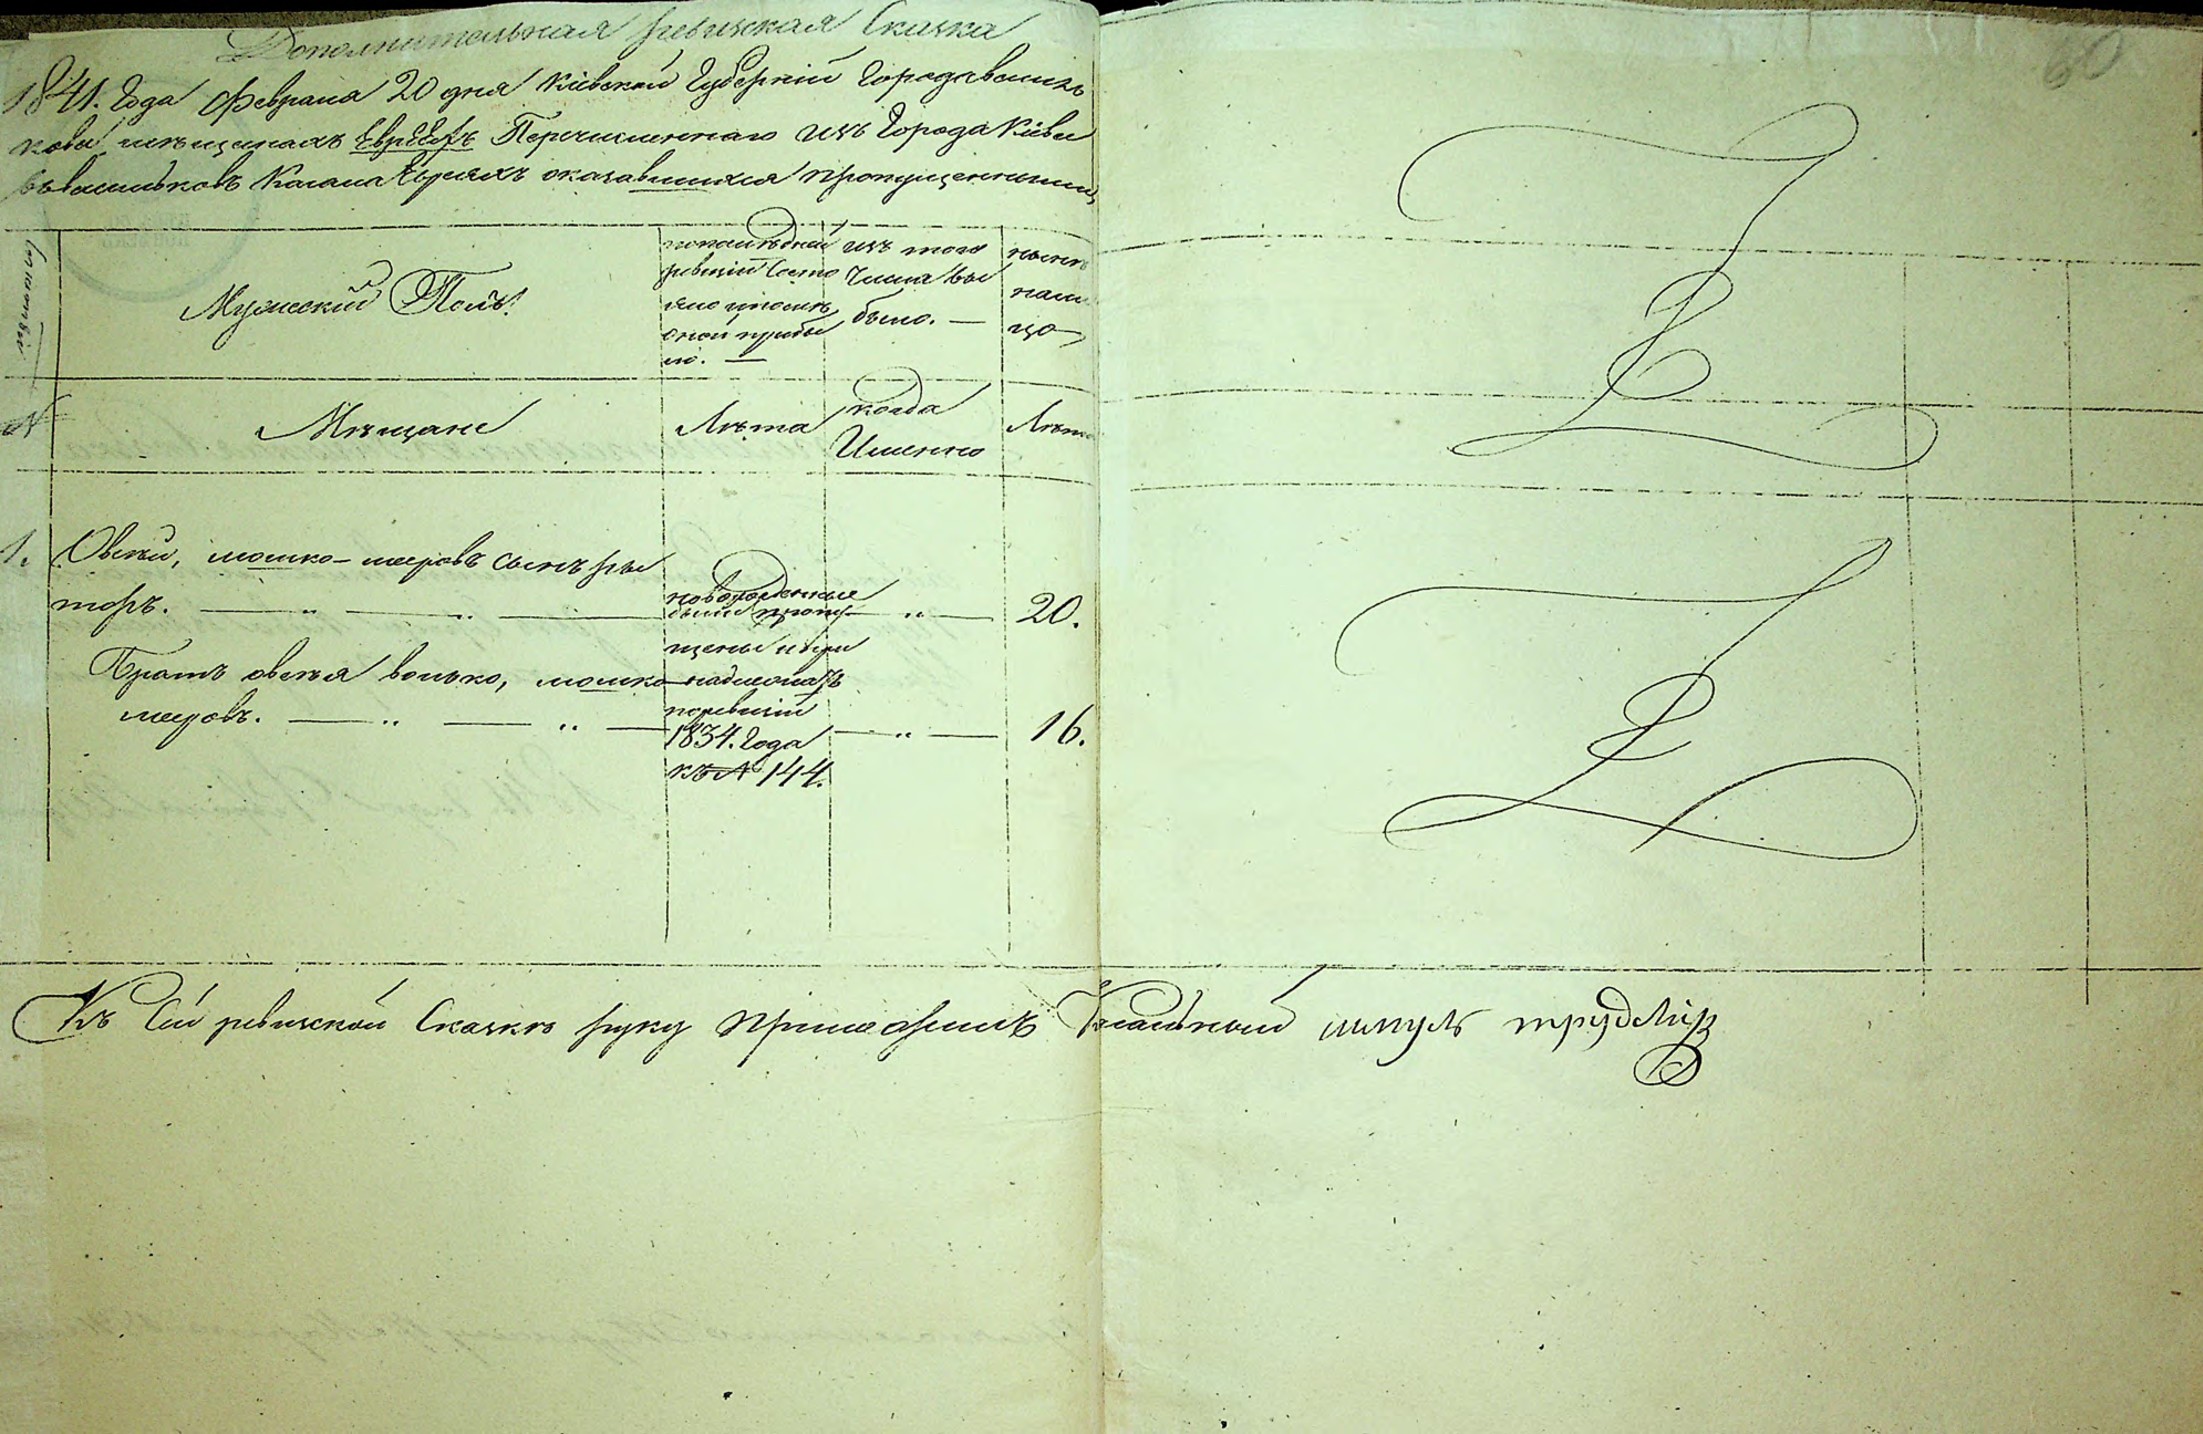 Дополнительная ревизская Сказка
1841. Года Февраля 20 дня Кіевской Губерніи Города Василь
кова мѣщанахъ Евреяхъ Перечисленнаго изъ Города Кіева
въ Васильковъ Кагала Евреяхъ оказавшихся пропущенными
60
Мужеский Полъ.
по последней ревизіи Состо
яло и после оной прибы
ло. —
изъ того Числа вы
было. —
нынѣ на ли
цо
№
Мѣщане
Лѣта
когда Именно
Лѣта
1. Овсѣй, мошко-меровъ сынъ ры
торъ. — „ — „ — „ — 20.
новорожденные были пропу
щены и при
надлежатъ
по ревизіи
1834. Года
къ № 144.
Братъ овсѣя волько, мошко
меровъ. — „ — „ — „ — 16.
Къ Сей ревизской Сказкѣ руку Приложилъ Кагальный шмуль